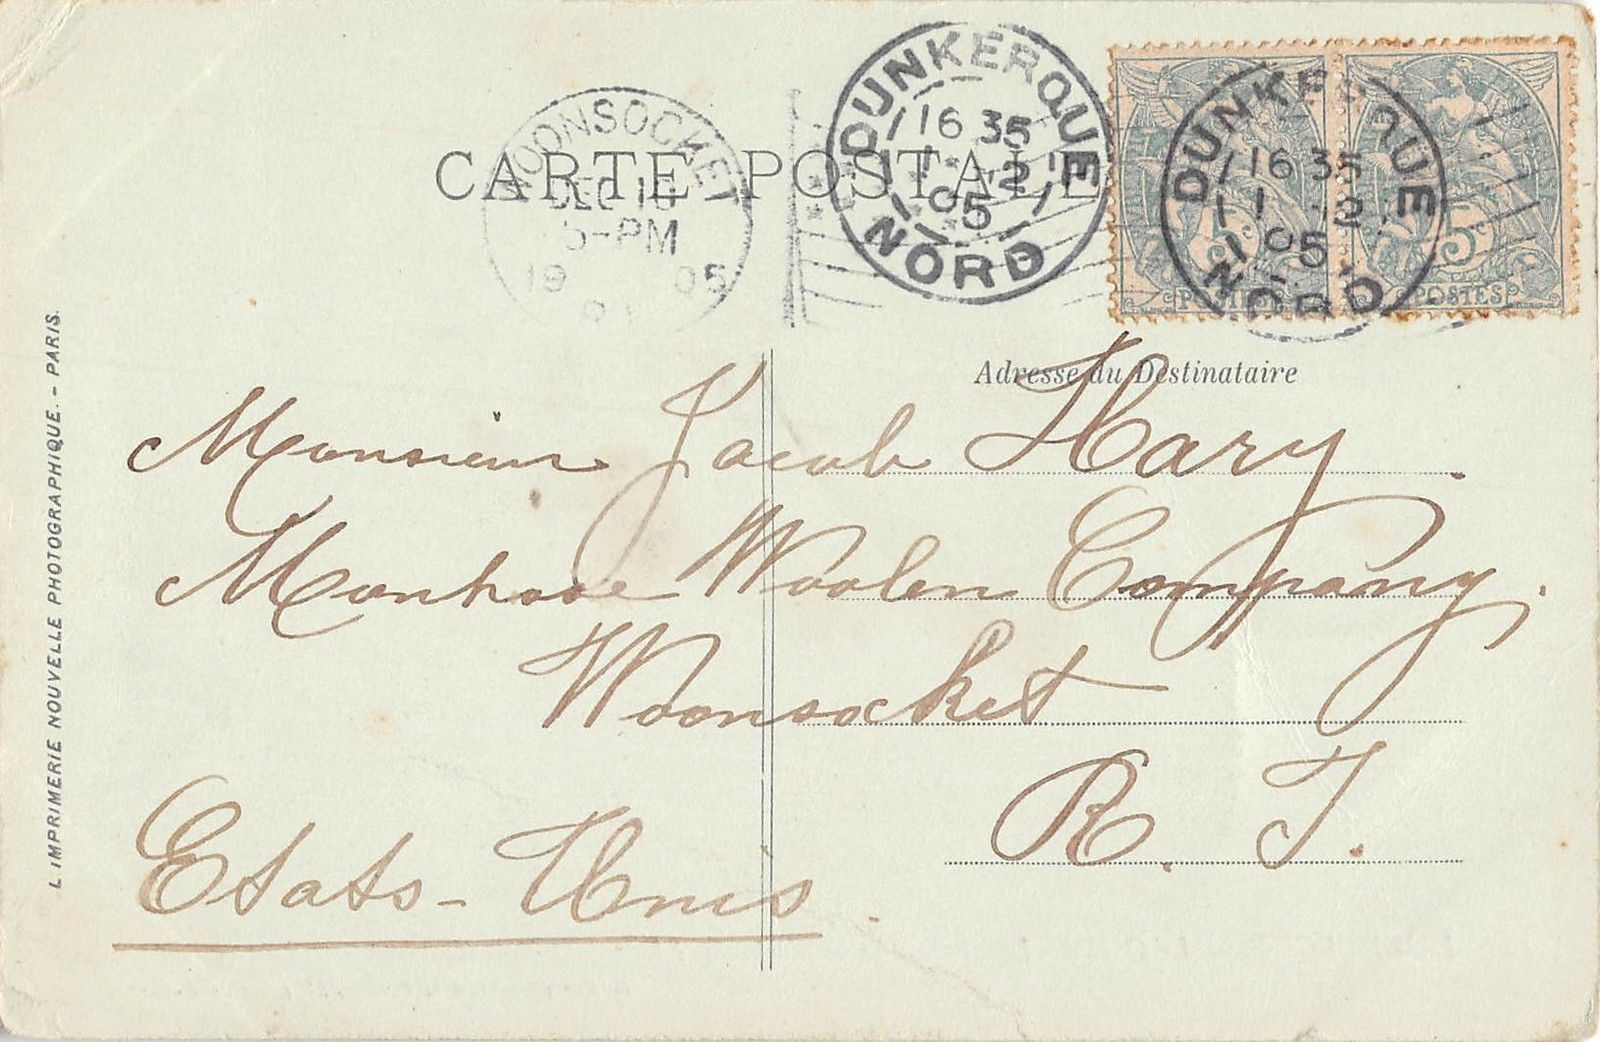 CARTE POSTALE
WOONSOCKET
DEC 10
5-PM
1905
DUNKERQUE
16 35
1 12
05
NORD
DUNKERQUE
16 35
1 12
05
NORD
5 5
POSTES POSTES
Adresse du Destinataire
Monsieur Jacob Hary.
Montrose Woolen Company.
Woonsocket
R. I.
Etats-Unis.
L'IMPRIMERIE NOUVELLE PHOTOGRAPHIQUE. - PARIS.